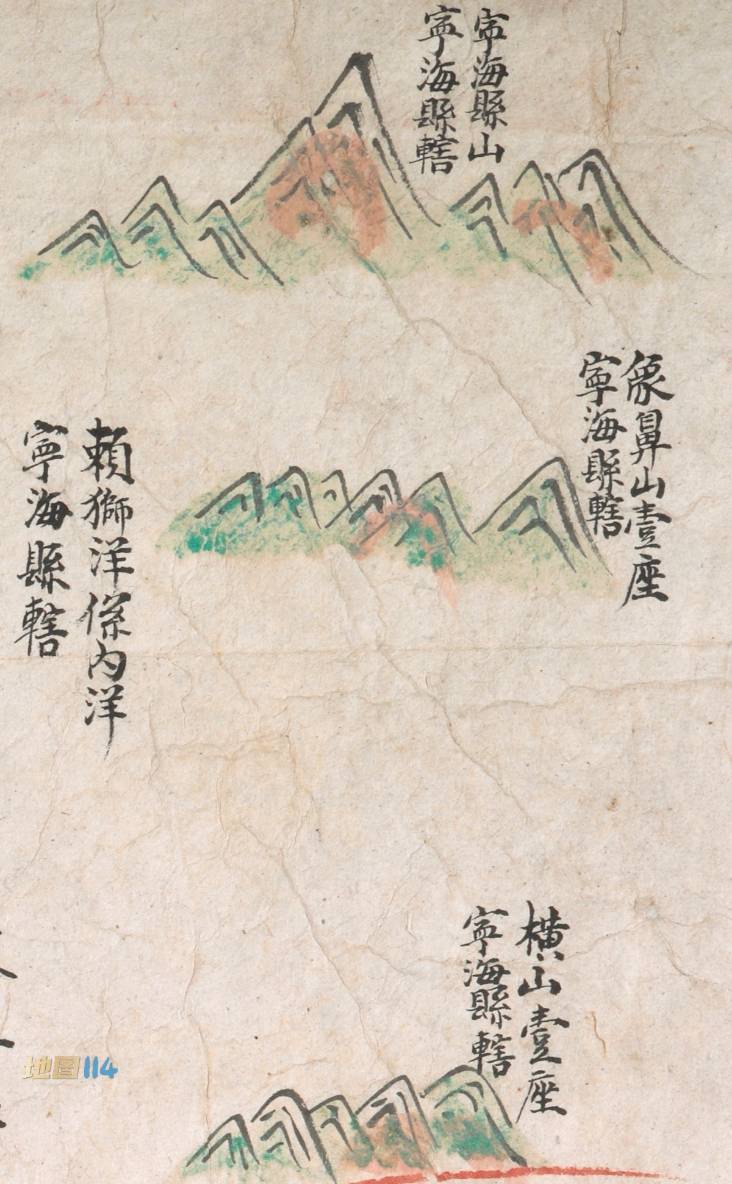 寧海縣山
寧海縣轄
象鼻山壹座
寧海縣轄
賴獅洋係內洋
寧海縣轄
橫山壹座
寧海縣轄
地图114